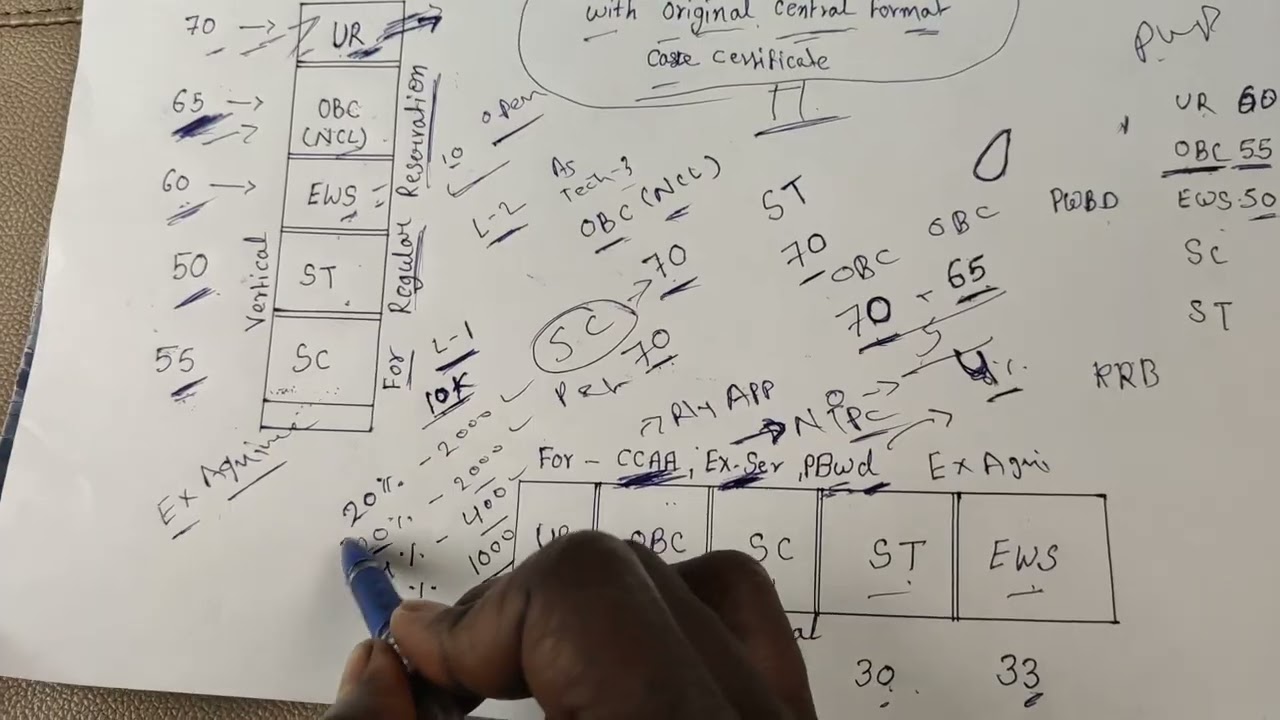 with original central format
caste certificate
PWD
70 → UR
65 → OBC
(NCL)
60 → EWS
50 ST
55 SC
Vertical
For Regular Reservation
Ex Agni
10 open
L-2
As
Tech-3
OBC (NCL)
70
ST
70
OBC
OBC
70 - 65
5
SC
70
PWBD
UR 60
OBC 55
EWS 50
SC
ST
RRB
L-1
10K
20%. - 2000
- 2000
%. - 400
%. 1000
Rly APP
NTPC
For - CCAA, Ex-Ser, PBwd Ex Agni
UR OBC SC ST EWS
30 33